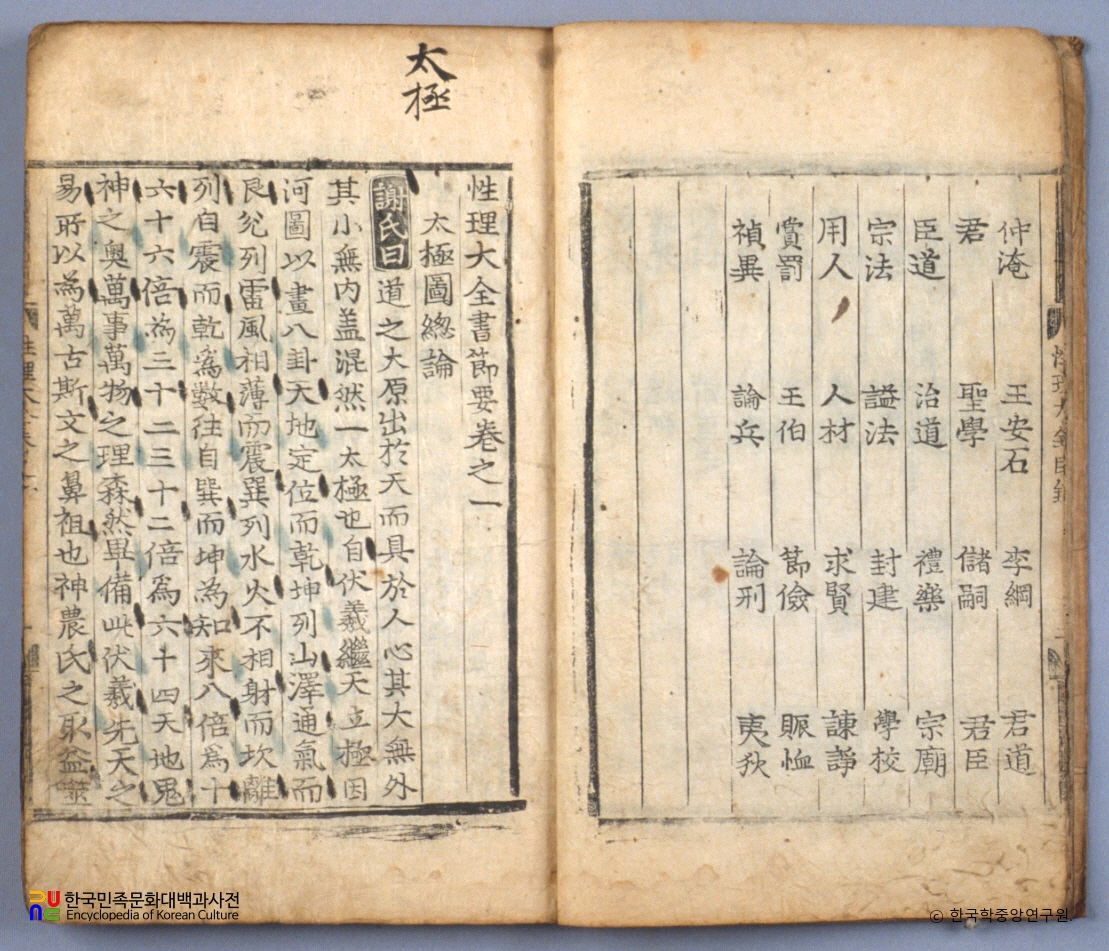 仲淹 王安石 李綱 君道
君 聖學 儲嗣 君臣
臣道 治道 禮樂 宗廟
宗法 謚法 封建 學校
用人 人材 求賢 諫諍
賞罰 王伯 節儉 賑恤
禎異 論兵 論刑 夷狄
太極
性理大全書節要卷之一
太極圖總論
謝氏曰道之大原出於天而具於人心其大無外
其小無内盖混然一太極也自伏羲繼天立極因
河圖以畫八卦天地定位而乾坤列山澤通氣而
艮兊列雷風相薄而震巽列水火不相射而坎離
列自震而乾爲數徃自巽而坤為知來八倍爲十
六十六倍為三十二三十二倍爲六十四天地鬼
神之奧萬事萬物之理森然畢備此伏羲先天之
易所以為萬古斯文之鼻祖也神農氏之取益噬
한국민족문화대백과사전
Encyclopedia of Korean Culture
© 한국학중앙연구원